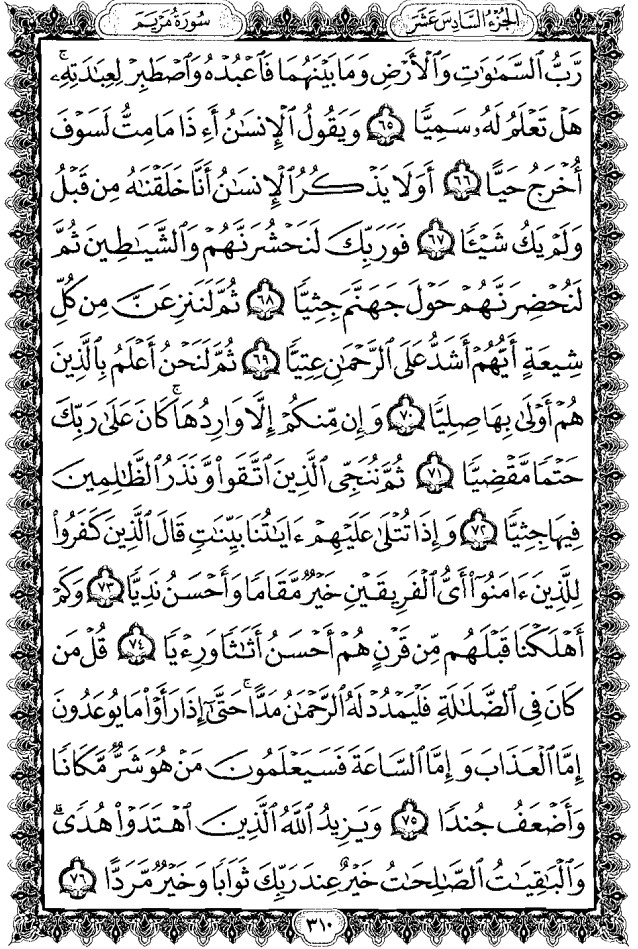 الجُزْءُ السَّادِسَ عَشَرَ
سُورَةُ مَرْيَمَ
رَّبُّ ٱلسَّمَٰوَٰتِ وَٱلْأَرْضِ وَمَا بَيْنَهُمَا فَٱعْبُدْهُ وَٱصْطَبِرْ لِعِبَٰدَتِهِۦۚ
هَلْ تَعْلَمُ لَهُۥ سَمِيًّا ٦٥ وَيَقُولُ ٱلْإِنسَٰنُ أَءِذَا مَا مِتُّ لَسَوْفَ
أُخْرَجُ حَيًّا ٦٦ أَوَلَا يَذْكُرُ ٱلْإِنسَٰنُ أَنَّا خَلَقْنَٰهُ مِن قَبْلُ
وَلَمْ يَكُ شَيْـًٔا ٦٧ فَوَرَبِّكَ لَنَحْشُرَنَّهُمْ وَٱلشَّيَٰطِينَ ثُمَّ
لَنُحْضِرَنَّهُمْ حَوْلَ جَهَنَّمَ جِثِيًّا ٦٨ ثُمَّ لَنَنزِعَنَّ مِن كُلِّ
شِيعَةٍ أَيُّهُمْ أَشَدُّ عَلَى ٱلرَّحْمَٰنِ عِتِيًّا ٦٩ ثُمَّ لَنَحْنُ أَعْلَمُ بِٱلَّذِينَ
هُمْ أَوْلَىٰ بِهَا صِلِيًّا ٧٠ وَإِن مِّنكُمْ إِلَّا وَارِدُهَاۚ كَانَ عَلَىٰ رَبِّكَ
حَتْمًا مَّقْضِيًّا ٧١ ثُمَّ نُنَجِّى ٱلَّذِينَ ٱتَّقَوا۟ وَّنَذَرُ ٱلظَّٰلِمِينَ
فِيهَا جِثِيًّا ٧٢ وَإِذَا تُتْلَىٰ عَلَيْهِمْ ءَايَٰتُنَا بَيِّنَٰتٍ قَالَ ٱلَّذِينَ كَفَرُوا۟
لِلَّذِينَ ءَامَنُوٓا۟ أَىُّ ٱلْفَرِيقَيْنِ خَيْرٌ مَّقَامًا وَأَحْسَنُ نَدِيًّا ٧٣ وَكَمْ
أَهْلَكْنَا قَبْلَهُم مِّن قَرْنٍ هُمْ أَحْسَنُ أَثَٰثًا وَرِءْيًا ٧٤ قُلْ مَن
كَانَ فِى ٱلضَّلَٰلَةِ فَلْيَمْدُدْ لَهُ ٱلرَّحْمَٰنُ مَدًّاۚ حَتَّىٰٓ إِذَا رَأَوْا۟ مَا يُوعَدُونَ
إِمَّا ٱلْعَذَابَ وَإِمَّا ٱلسَّاعَةَ فَسَيَعْلَمُونَ مَنْ هُوَ شَرٌّ مَّكَانًا
وَأَضْعَفُ جُندًا ٧٥ وَيَزِيدُ ٱللَّهُ ٱلَّذِينَ ٱهْتَدَوْا۟ هُدًىۗ
وَٱلْبَٰقِيَٰتُ ٱلصَّٰلِحَٰتُ خَيْرٌ عِندَ رَبِّكَ ثَوَابًا وَخَيْرٌ مَّرَدًّا ٧٦
٣١٠